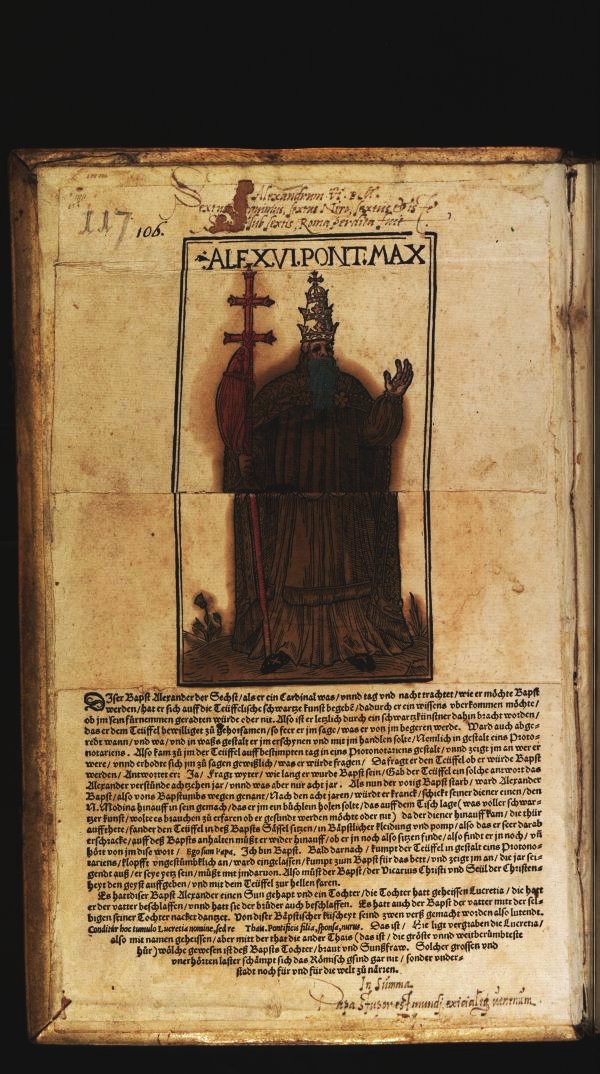 117
106.
Alexandrum VI. P. M.
Sub sextis, Roma perdita fuit
·ALEX.VI.PONT.MAX
DIser Bapst Alexander der Sechst/als er ein Cardinal was/vnnd tag vnd nacht trachtet/wie er möchte Bapst
werden/hat er sich auff die Teüffelische schwartze kunst begebē/dadurch er ein wissens vberkommen möchte/
ob jm sein fürnemmen geradten würde oder nit. Also ist er letzlich durch ein schwartzkünstner dahin bracht worden/
das er dem Teüffel bewilliget zů gehorsamen/so feer er jm sage/was er von jm begeren werde. Ward auch abge-
redt wann/vnd wa/vnd in waß gestalt er jm erschynen vnd mit jm handlen solte/Nemlich in gestalt eins Proto-
notariens. Also kam zů jm der Teüffel auff bestimpten tag in eins Protonotariens gestalt/vnnd zeigt jm an wer er
were/vnnd erbodte sich jm zů sagen gewißlich/was er würde fragen/ Da fragt er den Teüffel ob er würde Bapst
werden/Antwortet er: Ja/ Fragt wyter/wie lang er wurde Bapst sein/Gab der Teüffel ein solche antwort das
Alexander verstůnde achtzehen jar/vnnd was aber nur acht jar. Als nun der vorig Bapst starb/ward Alexander
Bapst/also vons Bapstumbs wegen genant/Nach den acht jaren/würdt er kranck/schickt seiner diener einen/den
N. Modina hinauff in sein gemach/das er jm ein bůchlein holen solte/das auff dem Tisch lage (was voller schwar-
tzer kunst/wolt es brauchen zů erfaren ob er gesundt werden möchte oder nit) da der diener hinauff kam/die thür
auffthete/fander den Teüffel in deß Bapsts Sässel sitzen/in Bäpstlicher kleidung vnd pomp/also das er seer darab
erschrack/auff deß Bapsts anhalten můßt er wider hinauff/ob er jn noch also sitzen finde/also findt er jn noch/vn̄
hört von jm dise wort/ Ego sum Papa. Ich bin Bapst. Bald darnach/kumpt der Teüffel in gestalt eins Protono-
tariens/klopfft vngestümbklich an/ward eingelassen/kumpt zum Bapst für das bett/vnd zeigt jm an/die jar sei-
gendt auß/er seye yetz sein/můßt mit jm daruon. Also můst der Bapst/der Vicarius Christi vnd Seül der Christen-
heyt den geyst auffgeben/vnd mit dem Teüffel zur hellen faren.
Es hat diser Bapst Alexander einen Sun gehapt vnd ein Tochter/die Tochter hatt geheissen Lucretia/die hatt
er der vatter beschlaffen/vnnd hatt sie der brůder auch beschlaffen. Es hatt auch der Bapst der vatter mit der sel-
bigen seiner Tochter nacket dantzet. Von diser Bäpstischer küscheyt seind zwen verß gemacht worden also lutendt.
Conditur hoc tumulo Lucretia nomine, sed re Thais. Pontificis filia, sponsa, nurus. Das ist/ Hie ligt vergraben die Lucretia/
also mit namen geheissen/aber mitt der that die ander Thais (das ist/die gröste vnnd weitberümbteste
hůr) wölche gewesen ist deß Bapsts Tochter/braut vnd Sunßfraw. Solcher grossen vnd
vnerhörten laster schämpt sich das Römisch gsind gar nit/sonder vnder-
stadt noch für vnd für die welt zů närren.
In Summa
Papa stupor est mundi, exicialeq3 venenum